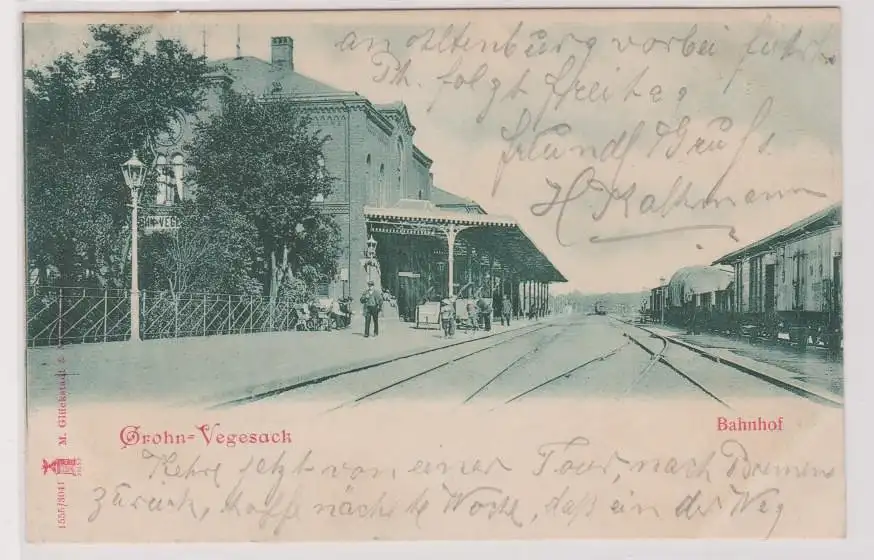 an Oltenburg vorbei führt
Pk. folgt freitag
freundl Gruß
H Kaltmann
HN-VEGE
Grohn-Vegesack
Bahnhof
Kehre jetzt von einer Tour, nach Bremen
zurück, hoffe nächste Woche, daß ein der Weg
M. Glückstadt &
1555/8041